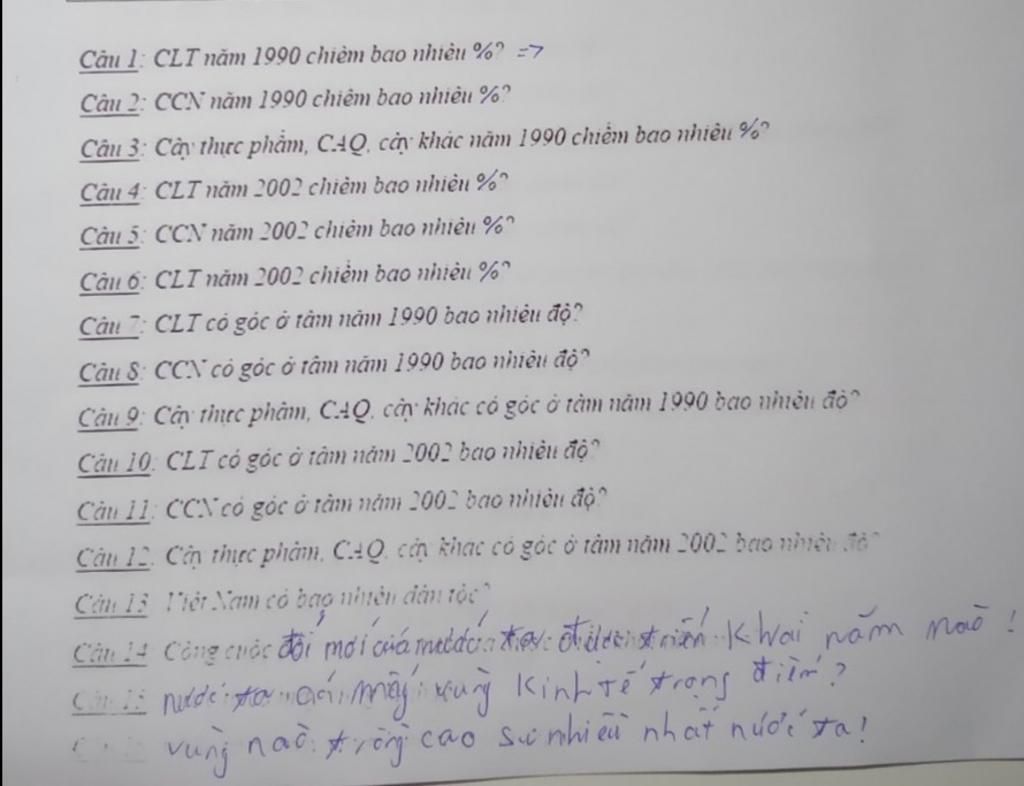 Câu 1: CLT năm 1990 chiếm bao nhiêu %? =>
Câu 2: CCN năm 1990 chiếm bao nhiêu %?
Câu 3: Cây thực phẩm, CAQ, cây khác năm 1990 chiếm bao nhiêu %?
Câu 4: CLT năm 2002 chiếm bao nhiêu %?
Câu 5: CCN năm 2002 chiếm bao nhiêu %?
Câu 6: CLT năm 2002 chiếm bao nhiêu %?
Câu 7: CLT có góc ở tâm năm 1990 bao nhiêu độ?
Câu 8: CCN có góc ở tâm năm 1990 bao nhiêu độ?
Câu 9: Cây thực phẩm, CAQ, cây khác có góc ở tâm năm 1990 bao nhiêu độ?
Câu 10: CLT có góc ở tâm năm 2002 bao nhiêu độ?
Câu 11: CCN có góc ở tâm năm 2002 bao nhiêu độ?
Câu 12: Cây thực phẩm, CAQ, cây khác có góc ở tâm năm 2002 bao nhiêu độ?
Câu 13: Việt Nam có bao nhiêu dân tộc?
Câu 14: Công cuộc đổi mới của nước ta được triển khai năm nào!
Câu 15 nước ta có mấy vùng Kinh tế trọng điểm?
vùng nào trồng cao su nhiều nhất nước ta!